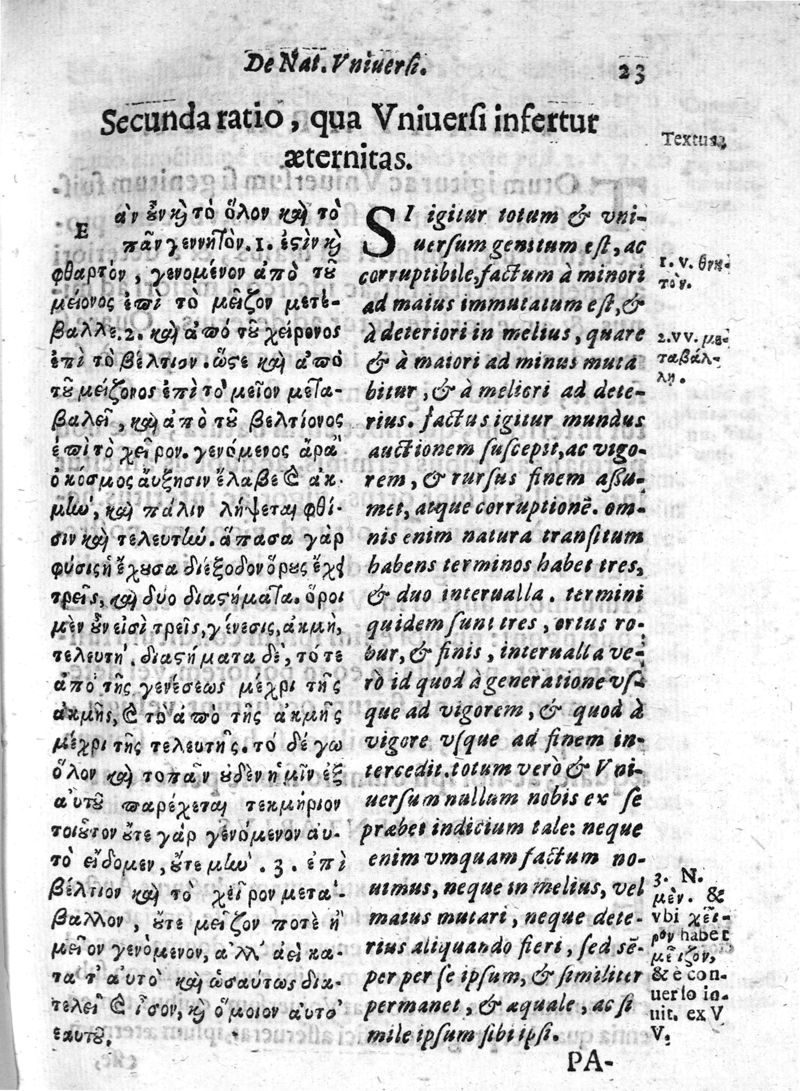 De Nat. Vniuersi.
23
Secunda ratio, qua Vniuersi infertur
æternitas.
Textus
Εὰν οὖν κὶ τὸ ὅλον καὶ τὸ
πᾶν γεννητὸν. 1. ἐςὶν κὶ
φθαρτόν, γενομένον ἀπὸ τοῦ
μείονος ἐπὶ τὸ μεῖζον μετέ-
βαλλε. 2. καὶ ἀπό τοῦ χείρονος
ἐπὶ τὸ βέλτιον. ὥςε καὶ ἀπὸ
τοῦ μείζονος ἐπὶ τὸ μεῖον μετα-
βαλεῖ, καὶ ἀπὸ τοῦ βελτίονος
ἐπὶ τὸ χεῖρον. γενόμενος ἄρα
ὁ κόσμος ἄυξησιν ἔλαβε & ἀκ-
μὼ, καὶ πάλιν λήψεται φθί-
σιν καὶ τελευτὼ. ἅπασα γὰρ
φύσις ἡ ἔχουσα διέξοδον ὅρους ἔχει
τρεῖς, καὶ δύο διαςήματα. ὅροι
μὲν οὖν εἰσὶ τρεῖς, γένεσις, ἀκμὴ,
τελευτή. διαςήματα δὲ, τό τε
ἀπὸ τῆς γενέσεως μέχρι τῆς
ἀκμῆς, & τὸ ἀπὸ τῆς ἀκμῆς
μέχρι τῆς τελευτῆς. τὸ δέ γω
ὅλον καὶ τὸ πᾶν οὐδὲν ἡμῖν ἐξ
αὑτοῦ παρέχεται τεκμήριον
τοιοῦτον οὔτε γὰρ γενόμενον αυ-
τὸ εἴδομεν, οὔτε μὼ. 3. ἐπὶ
βέλτιον καὶ τὸ χεῖρον μετα-
βαλλον, οὔτε μεῖζον ποτὲ ἢ
μεῖον γενόμενον, ἀλλ' ἀεὶ κα-
τα τ' αυτὸ καὶ ὡσαύτως δια-
τελεῖ & ἴσον, κὶ ὅμοιον αυτὸ
ἑαυτοῦ.
SI igitur totum & vni-
uersum genitum est, ac
corruptibile, factum à minori
ad maius immutatum est, &
à deteriori in melius, quare
& à maiori ad minus muta
bitur, & à meliori ad dete-
rius. factus igitur mundus
auctionem suscepit, ac vigo-
rem, & rursus finem assu-
met, atque corruptionē. om-
nis enim natura transitum
habens terminos habet tres,
& duo interualla. termini
quidem sunt tres, ortus ro-
bur, & finis, interualla ve-
rò id quod à generatione vs-
que ad vigorem, & quod à
vigore vsque ad finem in-
tercedit. totum verò & Vni-
uersum nullum nobis ex se
præbet indicium tale: neque
enim vmquam factum no-
uimus, neque in melius, vel
maius mutari, neque dete-
rius aliquando fieri, sed sē-
per per se ipsum, & similiter
permanet, & æquale, ac si
mile ipsum sibi ipsi.
1. V. θνη-
τὸν.
2. VV. με-
ταβάλ-
λῃ.
3. N.
μὲν. &
vbi χεῖ-
ρον habet
μεῖζον,
& è con-
uerso in-
uit. ex V
V.
PA-